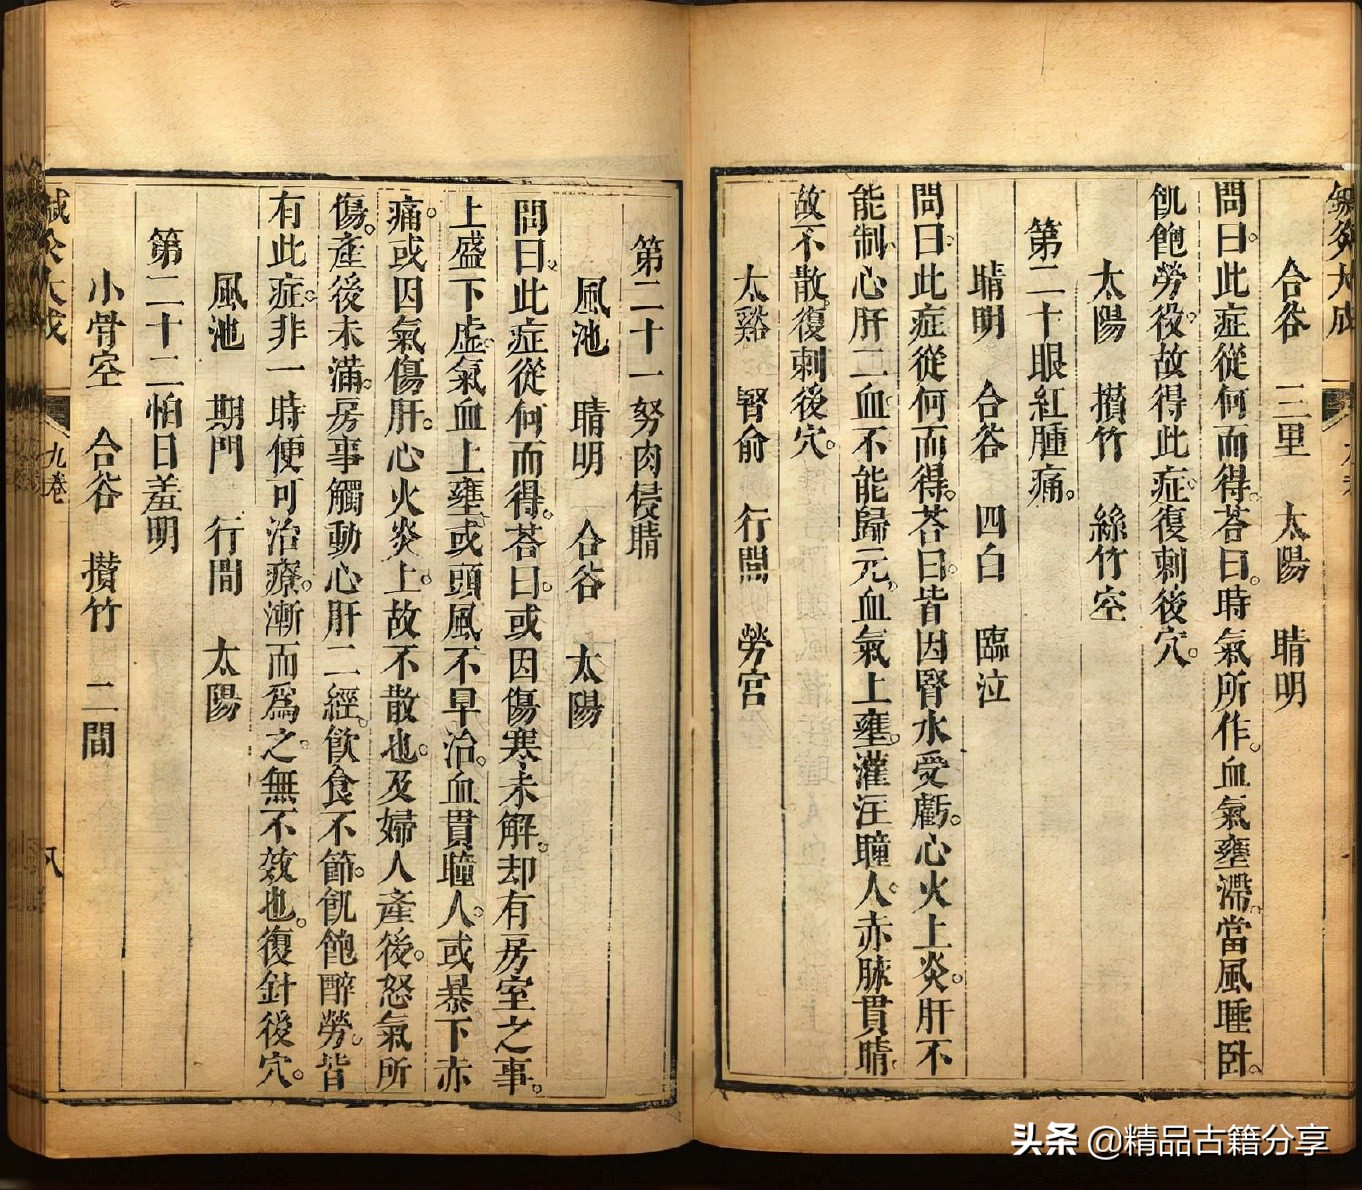 鍼灸大成
合谷　三里　太陽　睛明
問曰。此症從何而得。荅曰。時氣所作。血氣壅滯。當風睡卧。
飢飽勞役。故得此症。復刺後穴。
太陽　攢竹　絲竹空
第二十眼紅腫痛。
睛明　合谷　四白　臨泣
問曰。此症從何而得。荅曰。皆因腎水受虧。心火上炎。肝不
能制。心肝二血。不能歸元。血氣上壅。灌注瞳人。赤脉貫睛。
故不散。復刺後穴。
太谿　腎俞　行間　勞宮
第二十一努肉侵睛
風池　睛明　合谷　太陽
問曰。此症從何而得。荅曰。或因傷寒未解。却有房室之事。
上盛下虛。氣血上壅。或頭風不早治。血貫瞳人。或暴下赤
痛。或因氣傷肝。心火炎上。故不散也。及婦人產後。怒氣所
傷。產後未滿。房事觸動心肝二經。飲食不節。飢飽醉勞。皆
有此症。非一時便可治療。漸而爲之。無不效也。復針後穴。
風池　期門　行間　太陽
第二十二怕日羞明
小骨空　合谷　攢竹　二間
鍼灸大成
九卷
八
头条 @精品古籍分享